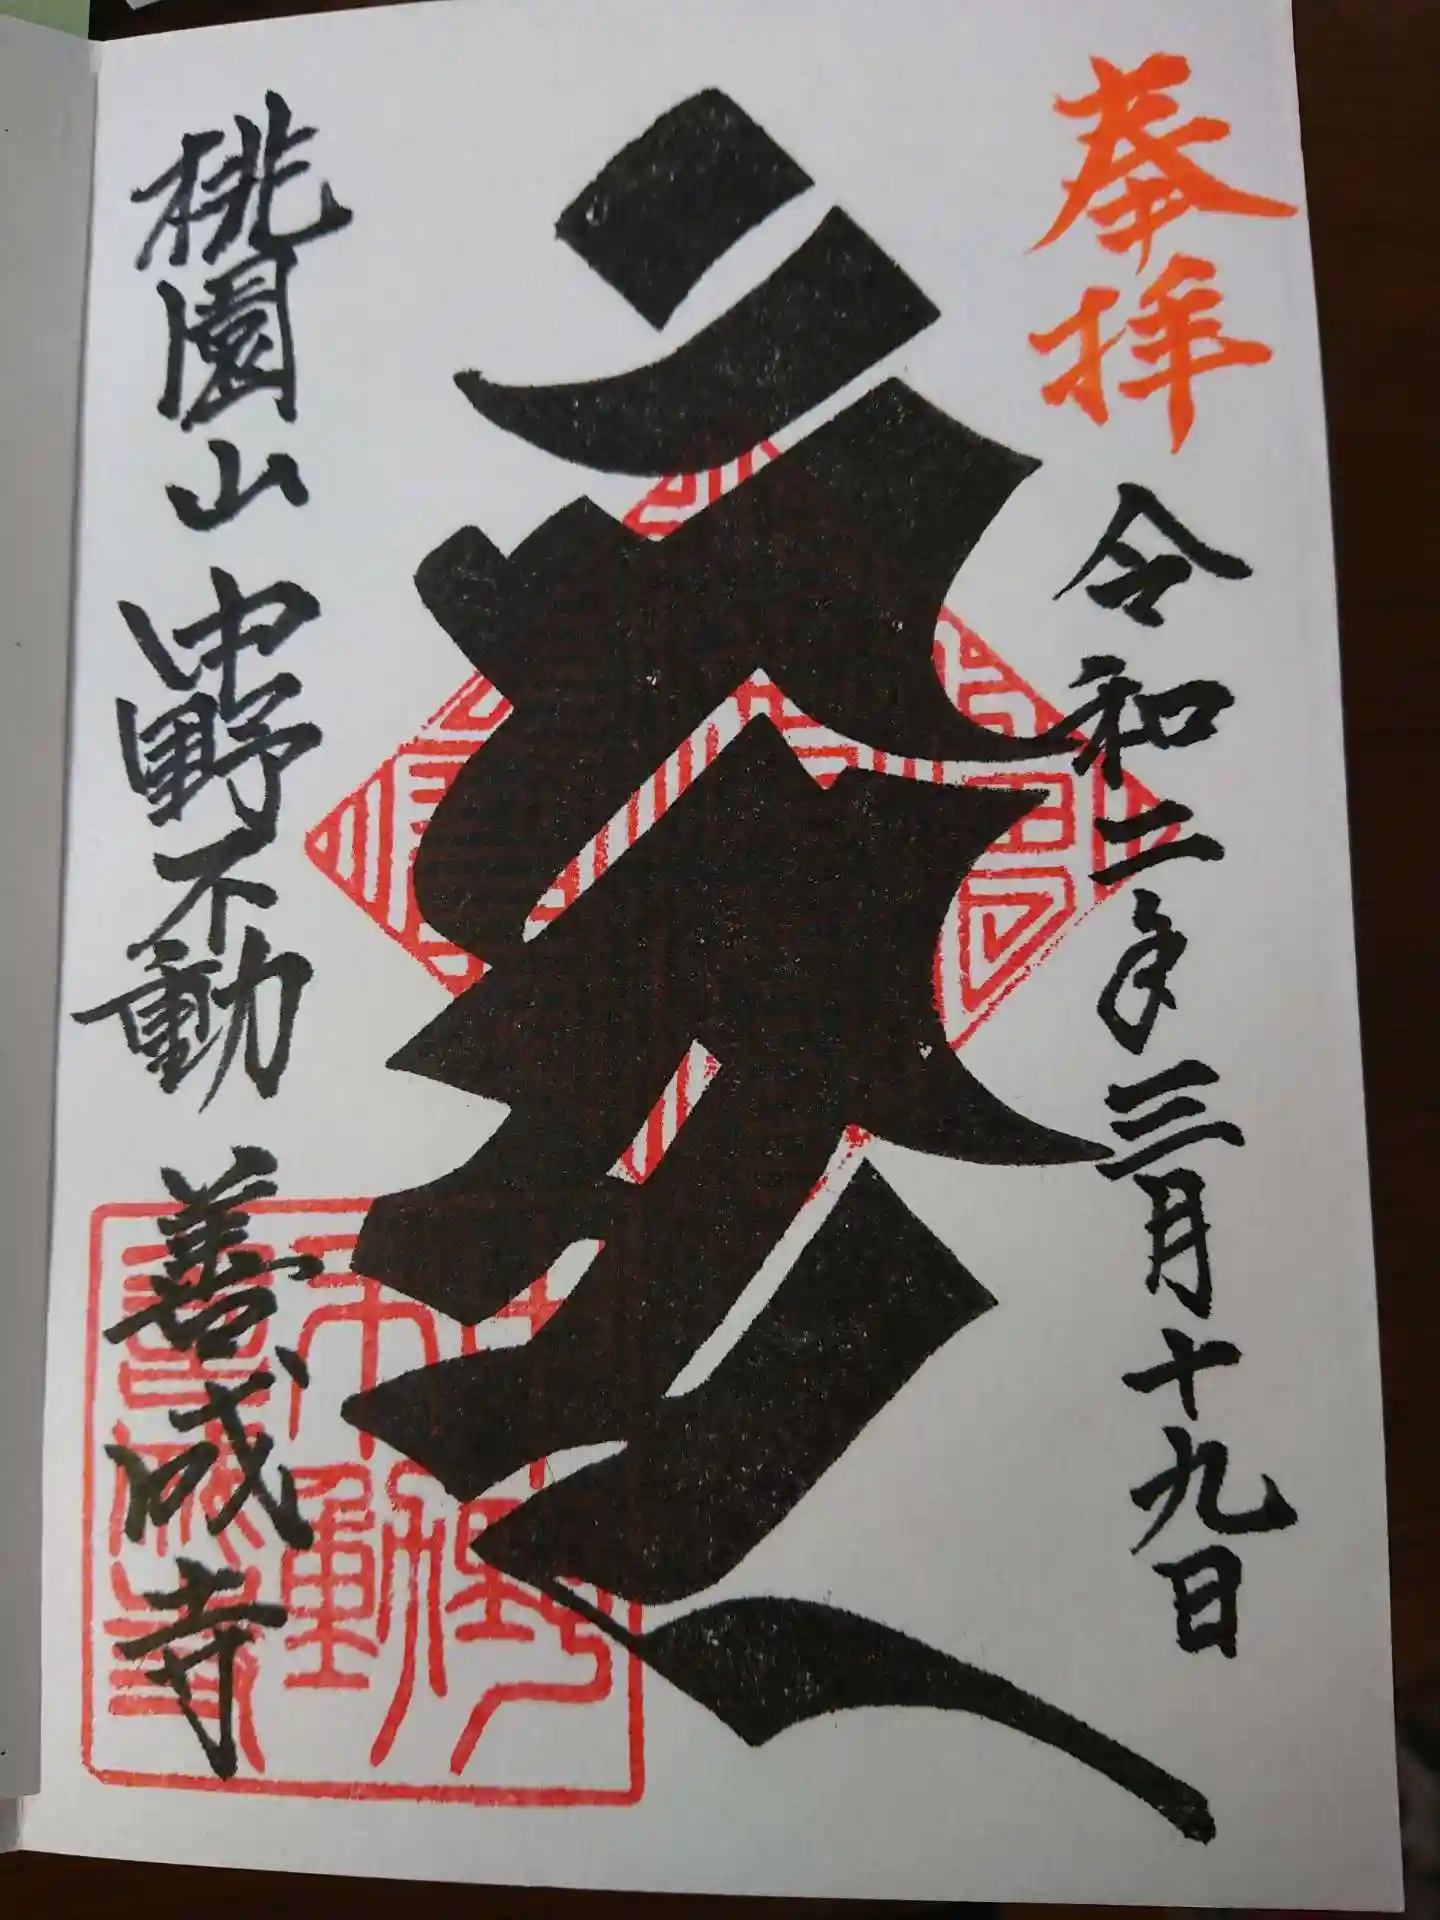 奉拝
令和二年三月十九日
桃園山 中野不動 善成寺
中野
不動
善成寺